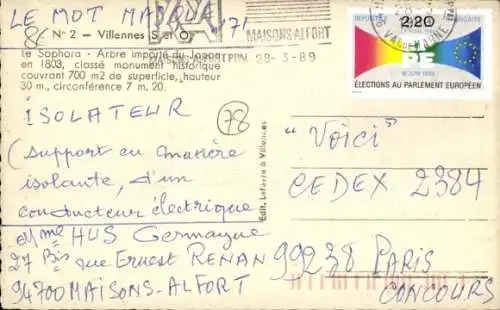 LE MOT MASQUÉ 171
86 N° 2 — Villennes (S et O)
Le Sophora - Arbre importé du Japon
en 1803, classé monument historique
couvrant 700 m2 de superficie, hauteur
30 m., circonférence 7 m. 20.
MAISONS-ALFORT
MAISONS-ALFORT PPAL 28-3-89
REPUBLIQUE FRANÇAISE
2,20
LA POSTE 1989
18 JUIN 1989
ÉLECTIONS AU PARLEMENT EUROPÉEN
VAL DE MARNE
ISOLATEUR
(support en matière
isolante, d'un
conducteur électrique
78
Edit. Lefavre à Villennes
Mme HUS Germayne
27 Bis rue Ernest RENAN
94700 MAISONS-ALFORT
"Voici"
CEDEX 2384
99238 PARIS
CONCOURS